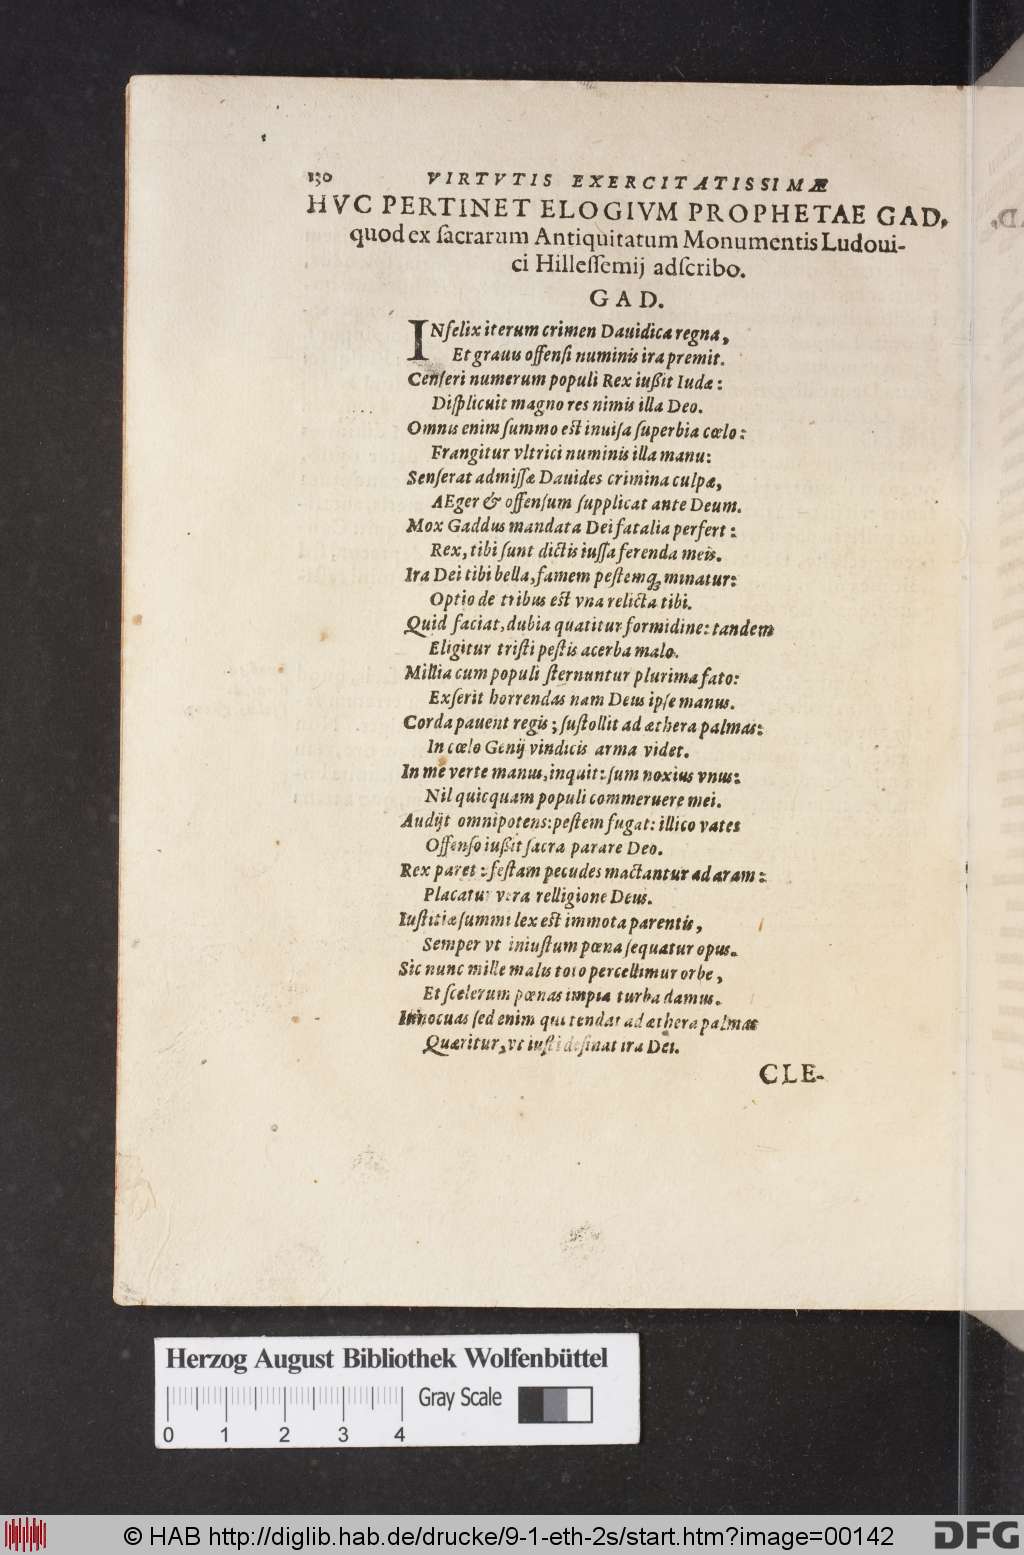 130 VIRTVTIS EXERCITATISSIMÆ
HVC PERTINET ELOGIVM PROPHETAE GAD,
quod ex sacrarum Antiquitatum Monumentis Ludoui-
ci Hillessemij adscribo.
GAD.
INfelix iterum crimen Dauidica regna,
Et grauis offensi numinis ira premit.
Censeri numerum populi Rex iußit Iudæ:
Displicuit magno res nimis illa Deo.
Omnis enim summo est inuisa superbia cœlo:
Frangitur vltrici numinis illa manu:
Senserat admissæ Dauides crimina culpæ,
AEger & offensum supplicat ante Deum.
Mox Gaddus mandata Dei fatalia perfert:
Rex, tibi sunt dictis iussa ferenda meis.
Ira Dei tibi bella, famem pestemq; minatur:
Optio de tribus est vna relicta tibi.
Quid faciat, dubia quatitur formidine: tandem
Eligitur tristi pestis acerba malo.
Millia cum populi sternuntur plurima fato:
Exserit horrendas nam Deus ipse manus.
Corda pauent regis; sustollit ad æthera palmas:
In cœlo Genij vindicis arma videt.
In me verte manus, inquit: sum noxius vnus:
Nil quicquam populi commeruere mei.
Audijt omnipotens: pestem fugat: illico vates
Offenso iußit sacra parare Deo.
Rex paret: festam pecudes mactantur ad aram:
Placatur vera relligione Deus.
Iustitiæ summi lex est immota parentis,
Semper vt iniustum pœna sequatur opus.
Sic nunc mille malis toto percellimur orbe,
Et scelerum pœnas impia turba damus.
Innocuas sed enim qui tendat ad æthera palmas
Quæritur, vt iusti desinat ira Dei.
CLE-
Herzog August Bibliothek Wolfenbüttel
Gray Scale
0 1 2 3 4
© HAB http://diglib.hab.de/drucke/9-1-eth-2s/start.htm?image=00142
DFG